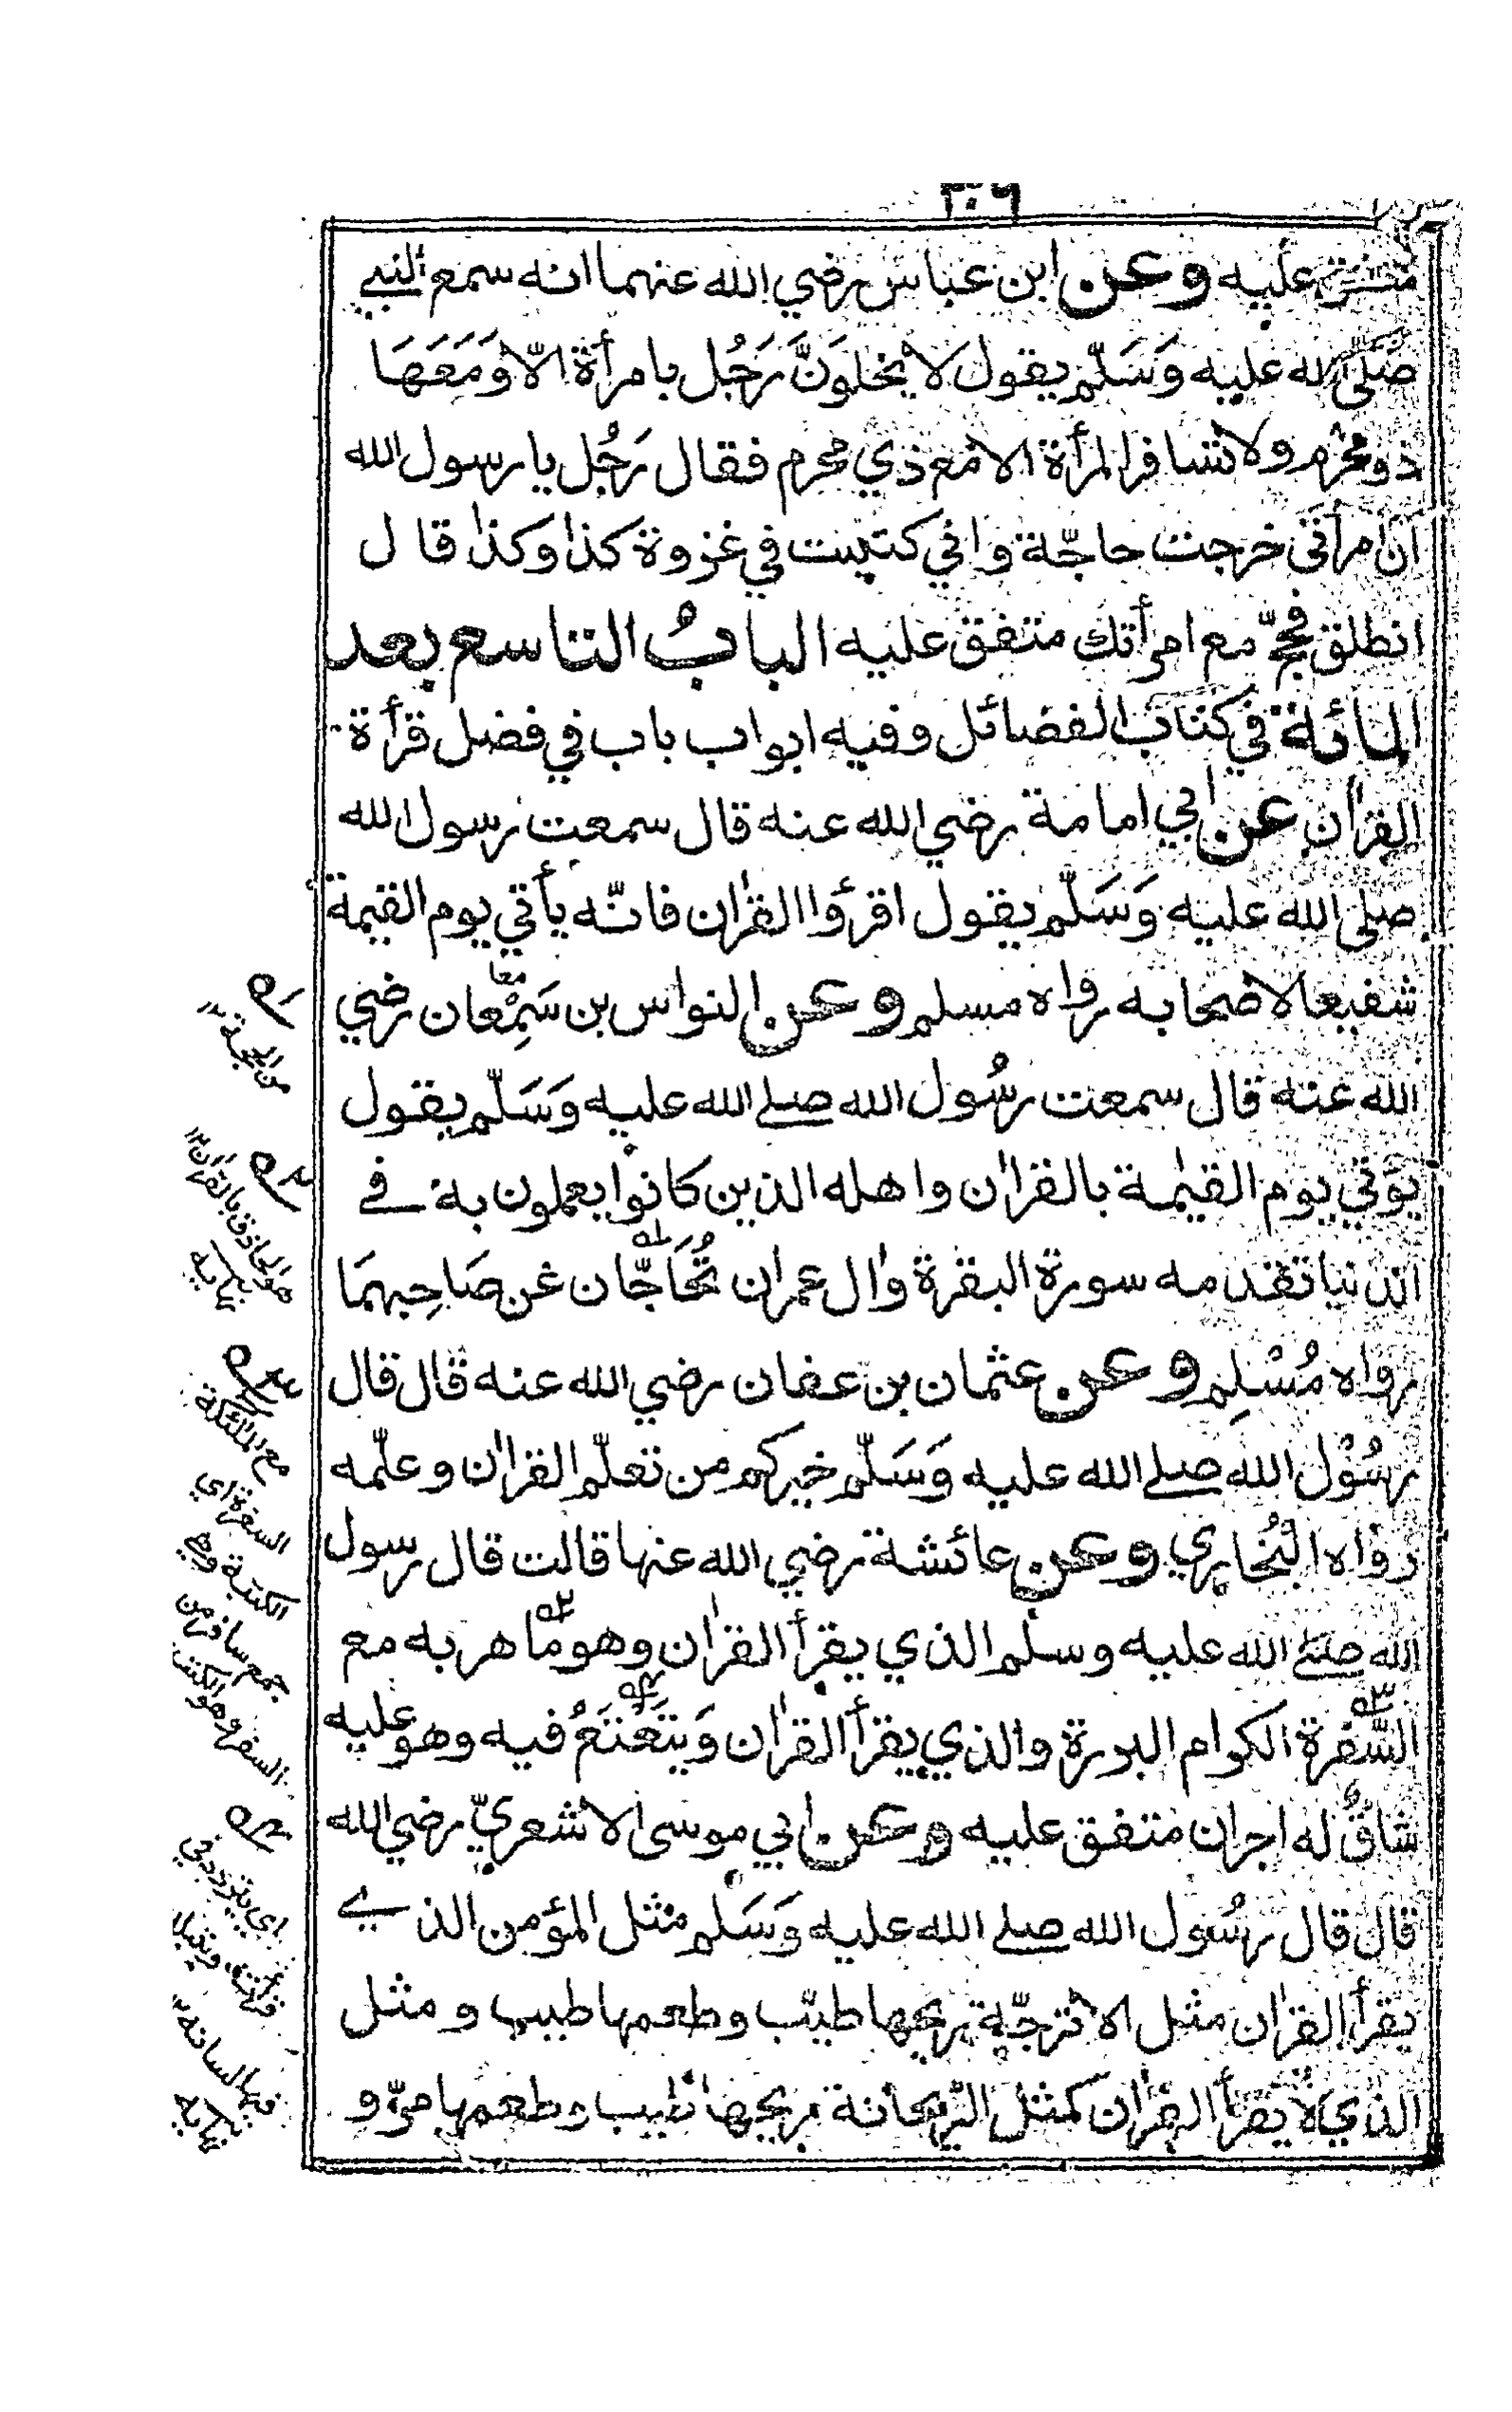 ٣٠٦
متفق عليه وعن ابن عباس رضي الله عنهما انه سمع النبي
صَلَّى الله عليه وَسَلَّم يقول لا يخلوَنَّ رَجُل بامرأة الّا وَمَعَهَا
ذو محرم ولا تسافر المرأة الا مع ذي محرم فقال رَجُل يا رسول الله
ان امرأتى خرجت حاجّة واني كتبت في غزوة كذا وكذا قال
انطلق فحجّ مع امرأتك متفق عليه البابُ التاسع بعد
المائة في كتاب الفضائل وفيه ابواب باب في فضل قرأة
القرأن عن ابي امامة رضي الله عنه قال سمعت رسول الله
صلى الله عليه وَسَلَّم يقول اقرؤا القرٰان فانّه يأتي يوم القيمة
شفيعا لاصحابه رواه مسلم وعن النواس بن سَمِْعان رضي
معا
الله عنه قال سمعت رسُول الله صلے الله عليه وَسَلَّم يقول
يؤتي يوم القيٰمة بالقرٰان واهله الذين كانوا يعملون به فے
الدنيا تقدمه سورة البقرة واٰل عمران تُحَاجّان عن صَاحِبهمَا
رواه مُسْلِم وعن عثمان بن عفان رضي الله عنه قال قال
رسُوْل الله صلے الله عليه وَسَلَّم خيركم من تعلّم القرٰان وعلّمه
رواه البُخاري وعن عائشة رضي الله عنها قالت قال رسول
الله صلے الله عليه وسلم الذي يقرأ القرٰان وهو ماهر به مع
السَّفرة الكرام البررة والذي يقرأ القرٰان وَيَتَعْتَعُ فيه وهو عليه
شاقٌ له اجران متفق عليه وعن ابي موسى الاشعريّ رضي الله
قال قال رسُول الله صلے الله عليه وَسَلم مثل المؤمن الذے
يقرأ القرٰان مثل الاترجّة ريحها طيّب وطعمها طيب ومثل
الذي لا يقرأ القرٰان كمثل الرّيحانة ريحها طيب وطعمها مرّ و
١ه
من الحجة ١٢
٢ه
هو الحاذق بالقرأن ١٢
نهايه
٣ه
مع الملئكة
السفرة اي
الكتبة وهي
جمع سافر من
السفر وهو الكتب
٤ه
اي يتردد في
قرأته ويتبلد
فيها لسانه ١٢
نهايه